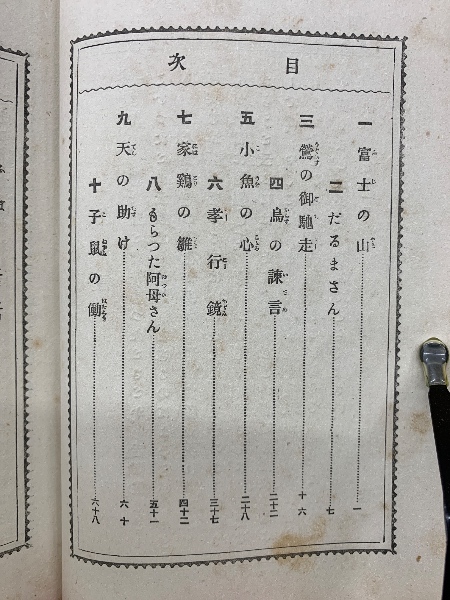 目次
一 富士の山 一
二 だるまさん 七
三 鶯の御馳走 十六
四 烏の諫言 二十二
五 小魚の心 二十八
六 孝行鏡 三十七
七 家鶏の雛 四十二
八 もらつた阿母さん 五十一
九 天の助け 六十
十 子鼠の働 六十八